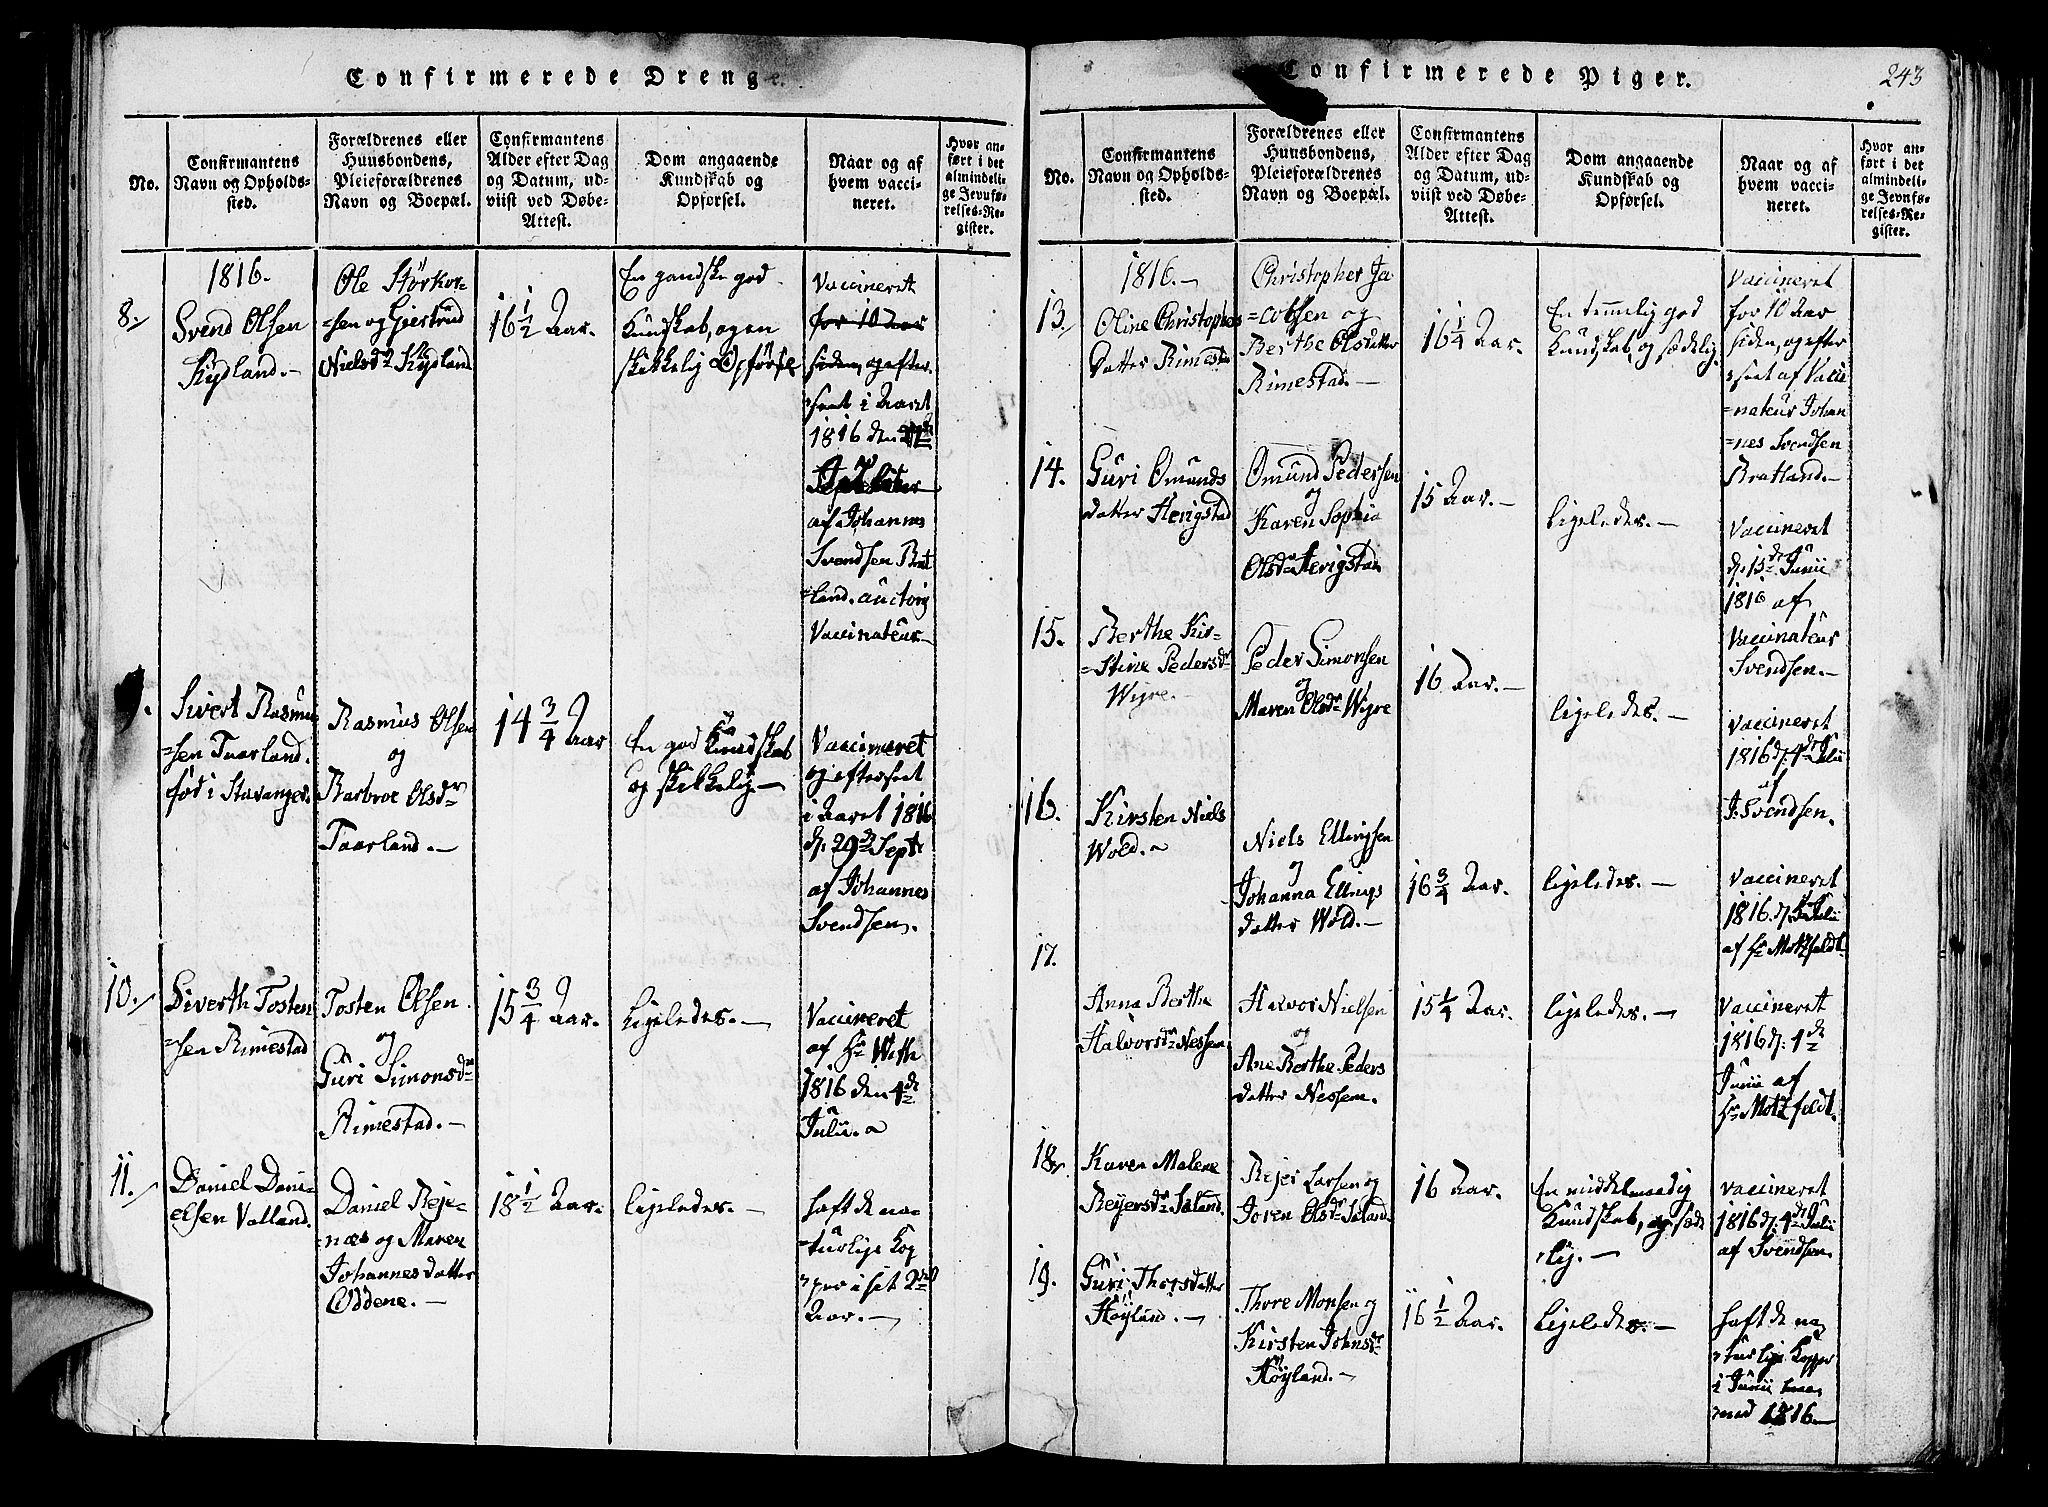 Confirmerede Drenge.
No.
Confirmantens
Navn og Opholds-
sted.
Forældrenes eller
Huusbondens,
Pleieforældrenes
Navn og Boepæl.
Confirmantens
Alder efter Dag
og Datum, ud-
viist ved Døbe-
Attest.
Dom angaaende
Kundskab og
Opførsel.
Naar og af
hvem vacci-
neret.
Hvor an-
ført i det
almindeli-
ge Jevnfø-
relses-Re-
gister.
8.
1816.
Svend Olsen
Kydland.-
Ole Størkor-
=sen og Giertrud
Nielsdr Kydland
16 1/2 Aar.
En gandske god
Kundskab, og en
skikkelig Opførsel
Vaccineret
for 10 Aar
siden, og efter-
=seet i Aaret
1816 den
af Johannes
Svendsen Brat
=land. auctorj
Vaccinateur-
9.
Sivert Rasmu
=sen Taarland.
fød i Stavanger.
Rasmus Olsen
og
Barbroe Olsdr
Taarland.-
14 3/4 Aar
En god Kundskab
og skikkelig-
Vaccineret
og efterseet
i Aaret 1816
d. 29de Septr
af Johannes
Svendsen.
10.
Siverth Tosten
=sen Rimestad
Tosten Olsen
og
Guri Simonsdr
Rimestad.-
15 3/4 Aar.
Ligeledes.-
Vaccineret
af Hr With
1816 den 4de
Julii.
11.
Daniel Dani-
elsen Valland.
Daniel Reje-
=næs og Maren
Johannesdatter
Oddene.-
18 1/2 Aar.
ligeledes.-
haft de na-
=turlige Kop
=per i sit 2det
Aar.-
Confirmerede Piger.
243
No.
Confirmantens
Navn og Opholds-
sted.
Forældrenes eller
Huusbondens,
Pleieforældrenes
Navn og Boepæl.
Confirmantens
Alder efter Dag
og Datum, ud-
viist ved Døbe-
Attest.
Dom angaaende
Kundskab og
Opførsel.
Naar og af
hvem vacci-
neret.
Hvor an-
ført i det
almindeli-
ge Jevnfø-
relses-Re-
gister.
13.
1816.-
Oline Christophers
Datter Rimestad
Christopher Ja
=cobsen og
Berthe Olsdatter
Rimestad.-
16 1/4 Aar.
En temmelig god
Kundskab, og sædelig.
Vaccineret
for 10 Aar
siden, og efter
=seet af Vacci
=nateur Johan
=nes Svendsen
Bratland.-
14.
Guri Omunds
datter Herigstad
Omund Pedersen
og
Karen Sophia
Olsdr Herigstad
15 Aar.-
ligeledes.-
Vaccineret
d. 15de Junii
1816 af
Vaccinateur
Svendsen.-
15.
Berthe Kir-
=stine Pedersdr
Wigre.-
Peder Simonsen
og
Maren Olsdr Wigre
16 Aar.-
ligeledes.-
Vaccineret
1816 d. 4de Julii
af
J. Svendsen.
16.
Kirsten Niels
Wold.
Niels Ellingsen
og
Johanna Ellings
datter Wold.-
16 3/4 Aar.
ligeledes.-
Vaccineret
1816 d. Julii
af Hr Motzfeldt.
17.
Anna Berthe
Halvorsdr Nessem
Halvor Nielsen
og
Ane Berthe Peders
datter Nessem.
15 1/4 Aar.
ligeledes.-
Vaccineret
1816 d. 1de
Junii af
Hr Motzfeldt.
18.
Karen Malene
Reijersdr Søland.
Rejer Larsen og
Joren Olsdr Søland.
16 Aar.
En middelmaadig
Kundskab, og sæde
=lig.-
Vaccineret
1816 d. 4de Julii
af Svendsen.
19.
Guri Thoresdatter
Høyland.-
Thore Monsen og
Kirsten Johnsdr
Høyland.-
16 1/2 Aar.
Ligeledes.-
haft de na
=turlige Kopper
i Junii maa
=ned 1816.-